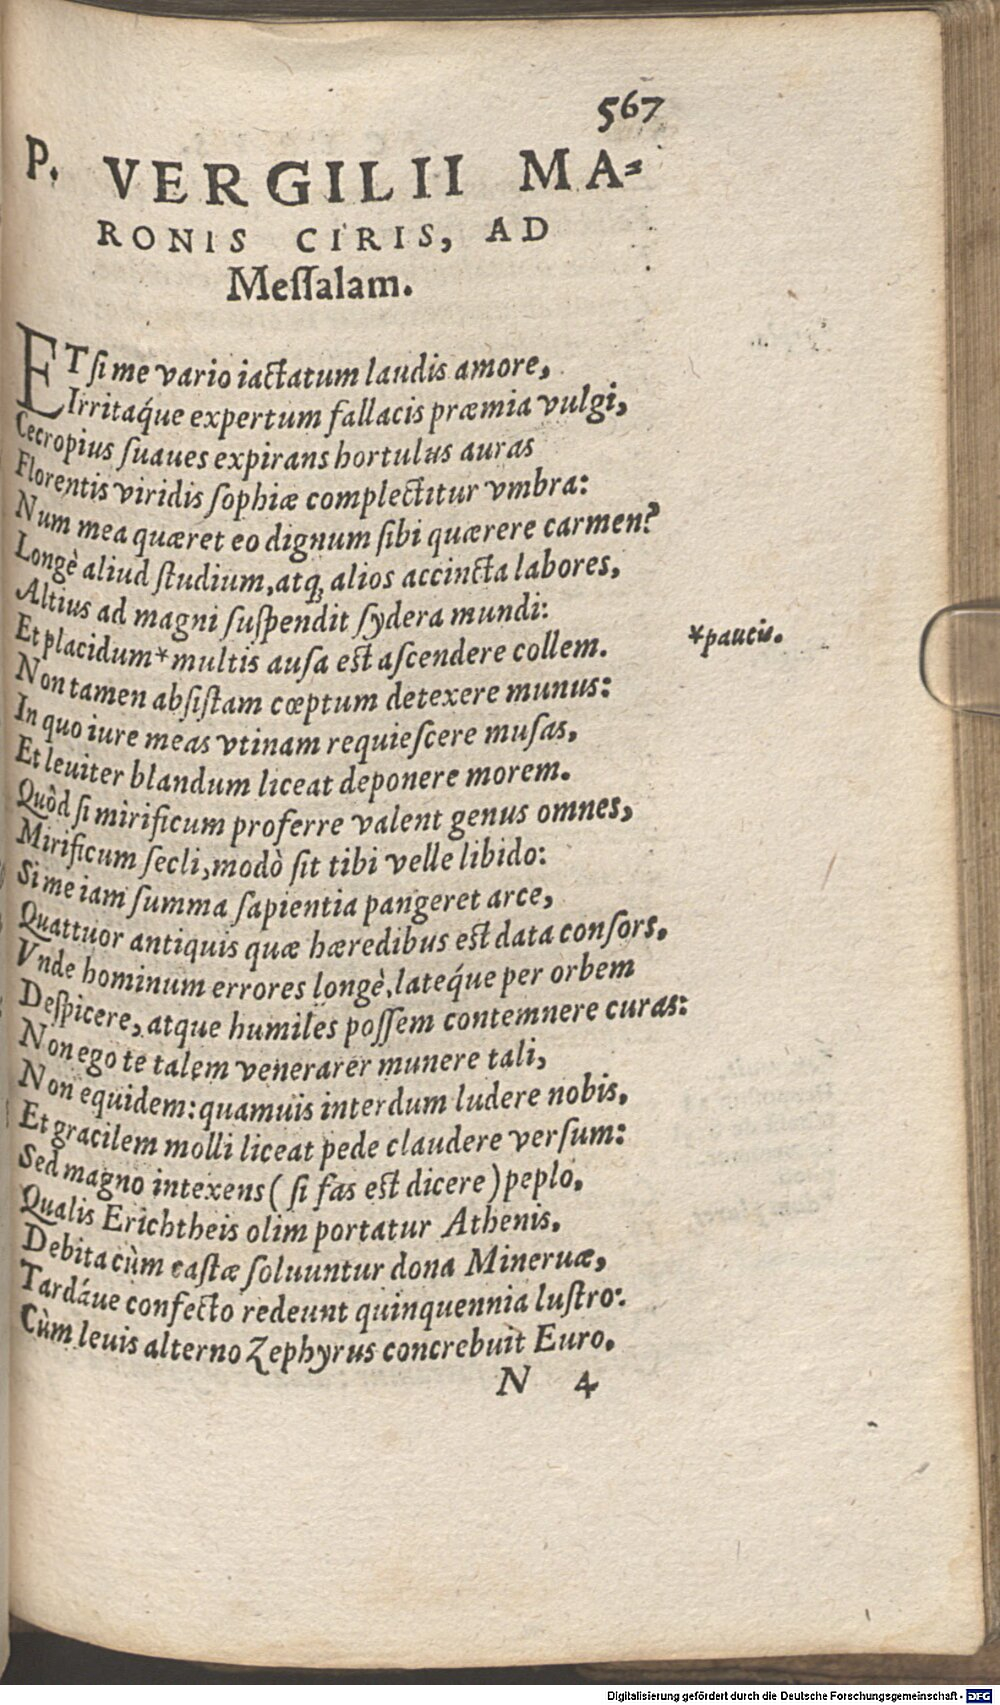 567
P. VERGILII MA-
RONIS CIRIS, AD
Meſſalam.
ET ſi me vario iactatum laudis amore,
Irritáque expertum fallacis præmia vulgi,
Cecropius ſuaues expirans hortulus auras
Florentis viridis ſophiæ complectitur vmbra:
Num mea quæret eo dignum ſibi quærere carmen?
Longè aliud ſtudium, atq; alios accincta labores,
Altius ad magni ſuſpendit ſydera mundi:
Et placidum* multis auſa est aſcendere collem. *paucis.
Non tamen abſiſtam cœptum detexere munus:
In quo iure meas vtinam requieſcere muſas,
Et leuiter blandum liceat deponere morem.
Quòd ſi mirificum proferre valent genus omnes,
Mirificum ſecli, modò ſit tibi velle libido:
Si me iam ſumma ſapientia pangeret arce,
Quattuor antiquis quæ hæredibus est data conſors,
Vnde hominum errores longè, latéque per orbem
Deſpicere, atque humiles poſſem contemnere curas:
Non ego te talem venerarer munere tali,
Non equidem: quamuis interdum ludere nobis,
Et gracilem molli liceat pede claudere verſum:
Sed magno intexens (ſi fas est dicere) peplo,
Qualis Erichtheis olim portatur Athenis,
Debita cùm caſtæ ſoluuntur dona Mineruæ,
Tardáue confecto redeunt quinquennia luſtro:
Cùm leuis alterno Zephyrus concrebuit Euro.
N 4
Digitalisierung gefördert durch die Deutsche Forschungsgemeinschaft - DFG